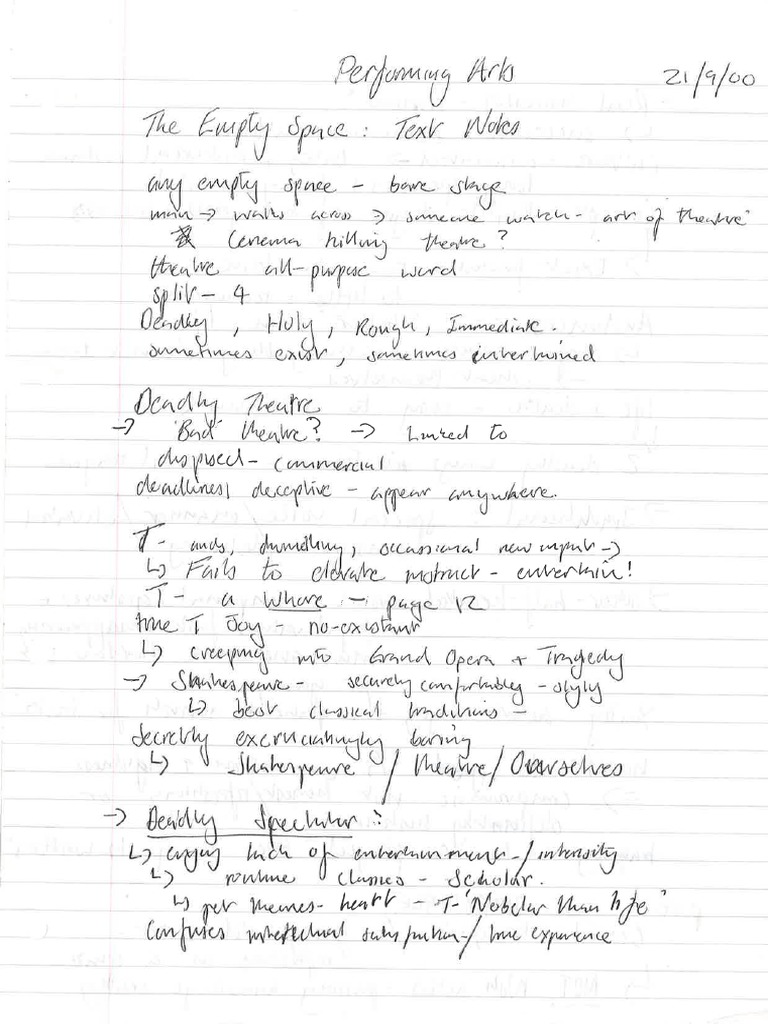 Performing Arts 21/9/00
The Empty Space : Text Notes
any empty space - bare stage
man → walks across → someone watch - art of theatre
Cenema killing theatre?
theatre all-purpose word
split - 4
Deadly, Holy, Rough, Immediate.
sometimes exist, sometimes intertwined
Deadly Theatre
→ 'Bad' theatre? → Linked to
dispised - commercial
deadliness deceptive - appear anywhere.
T - auds, dwindling, occassional new input →
↳ Fails to elevate instruct - entertain!
T - a whore - page 12
true T Joy - no-existant
↳ creeping into Grand Opera + Tragedy
→ Shakespeare - securely comfortably - slyly
↳ best classical traditions -
secretly excruciatingly boring
↳ Shakespeare / theatre / Ourselves
→ Deadly Spectator :
↳ enjoy lack of entertainment / intensity
↳ routine classics - Scholar.
↳ pet themes - heart - T - 'Nobelar than life'
Confuses intellectual satisfaction / true experience